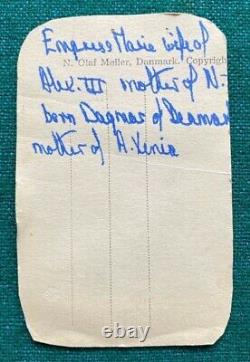 Empress Marie wife of
N. Olaf Møller, Danmark. Copyright
Alex. III mother of N-
born Dagmar of Denmark
mother of A. Xenia
119vvv.com